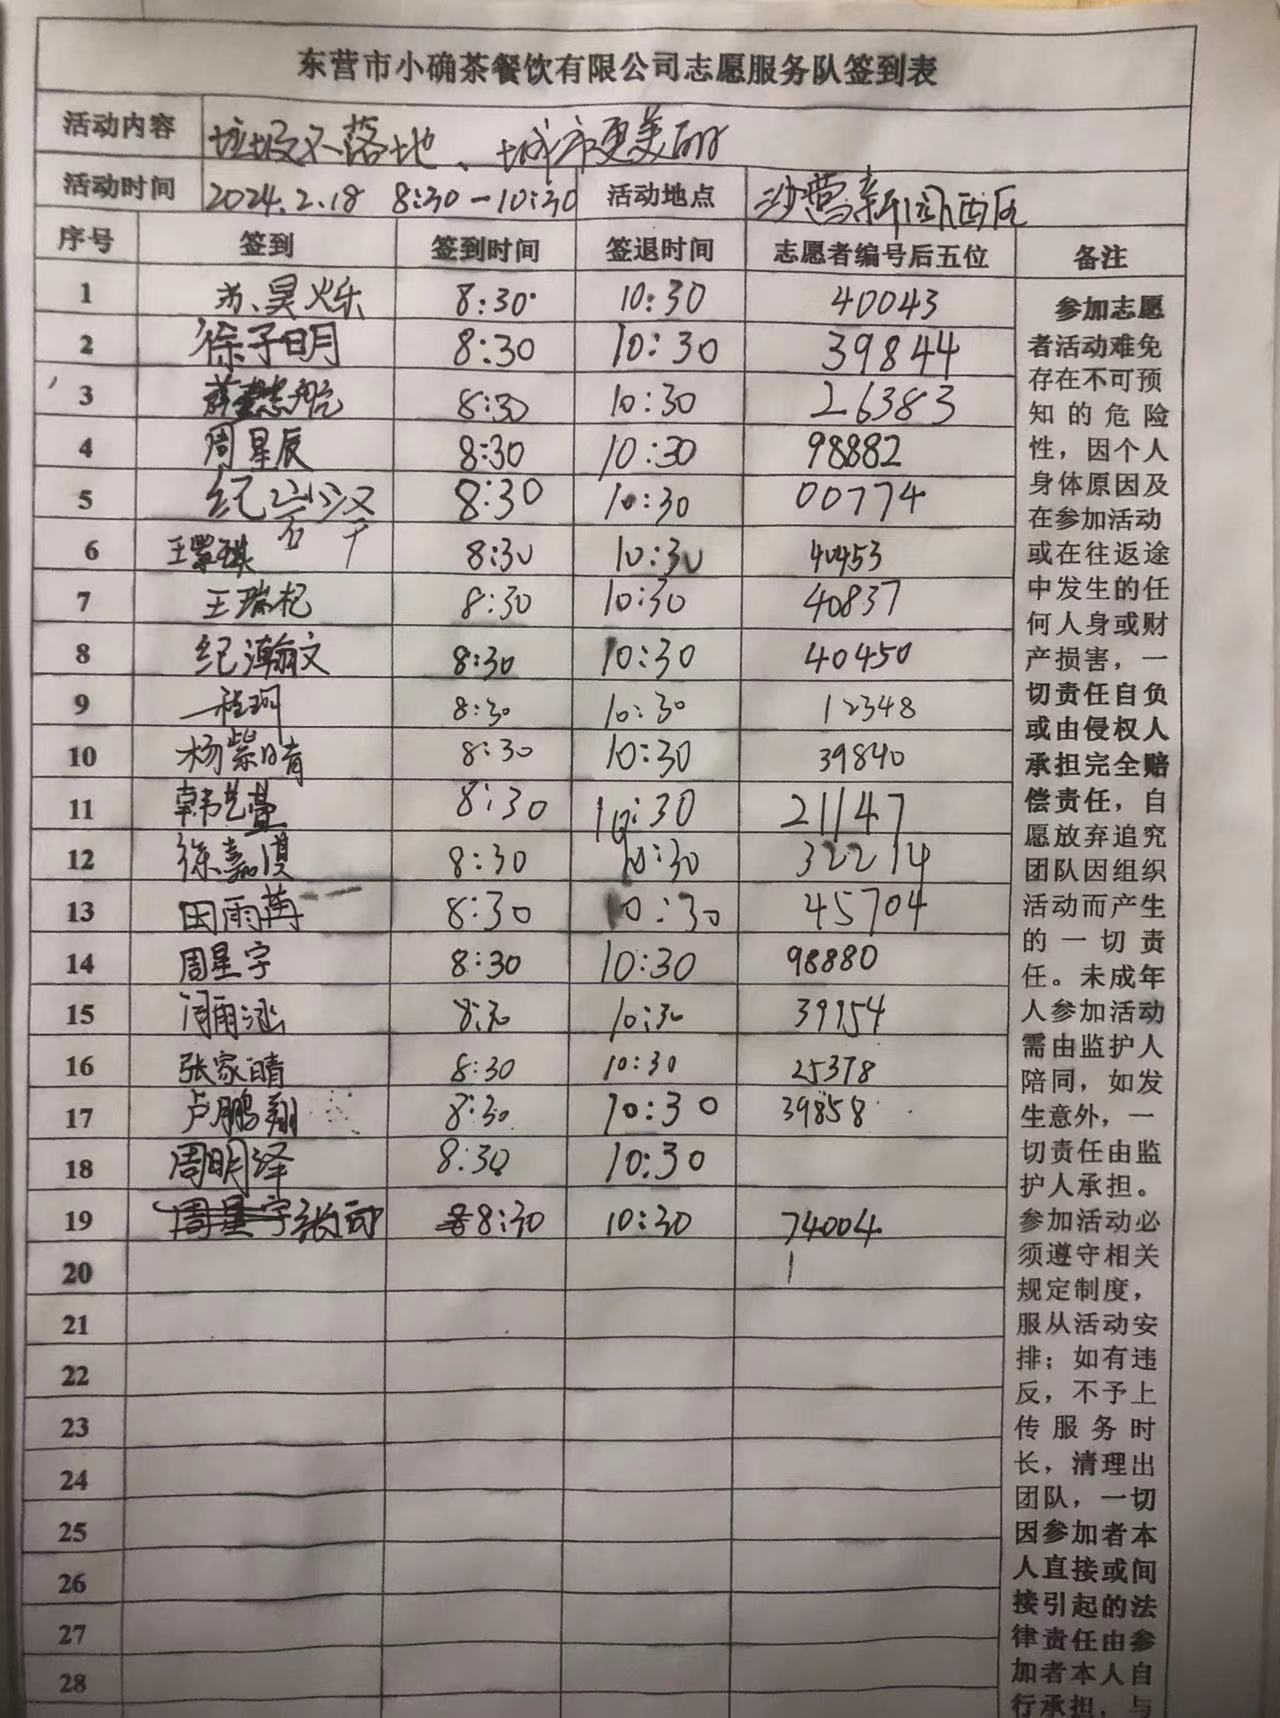 东营市小确茶餐饮有限公司志愿服务队签到表
活动内容 垃圾不落地、城市更美丽
活动时间 2024.2.18 8:30-10:30 活动地点 沙营新园西区
序号 签到 签到时间 签退时间 志愿者编号后五位 备注
1 苏昊烁 8:30 10:30 40043
2 徐子明 8:30 10:30 39844
3 8:30 10:30 26383
4 周星辰 8:30 10:30 98882
5 8:30 10:30 00774
6 8:30 10:30 40453
7 王瑞杞 8:30 10:30 40837
8 纪瀚文 8:30 10:30 40450
9 程珂 8:30 10:30 12348
10 杨紫晴 8:30 10:30 39840
11 韩艺萱 8:30 10:30 21147
12 徐嘉淇 8:30 10:30 32214
13 田雨 8:30 10:30 45704
14 周星宇 8:30 10:30 98880
15 闫雨涵 8:30 10:30 39954
16 张家晴 8:30 10:30 25378
17 卢鹏翔 8:30 10:30 39858
18 周明泽 8:30 10:30
19 周星宇 8:30 10:30 74004
20
21
22
23
24
25
26
27
28
参加志愿
者活动难免
存在不可预
知的危险
性，因个人
身体原因及
在参加活动
或在往返途
中发生的任
何人身或财
产损害，一
切责任自负
或由侵权人
承担完全赔
偿责任，自
愿放弃追究
团队因组织
活动而产生
的一切责
任。未成年
人参加活动
需由监护人
陪同，如发
生意外，一
切责任由监
护人承担。
参加活动必
须遵守相关
规定制度，
服从活动安
排；如有违
反，不予上
传服务时
长，清理出
团队，一切
因参加者本
人直接或间
接引起的法
律责任由参
加者本人自
行承担，与